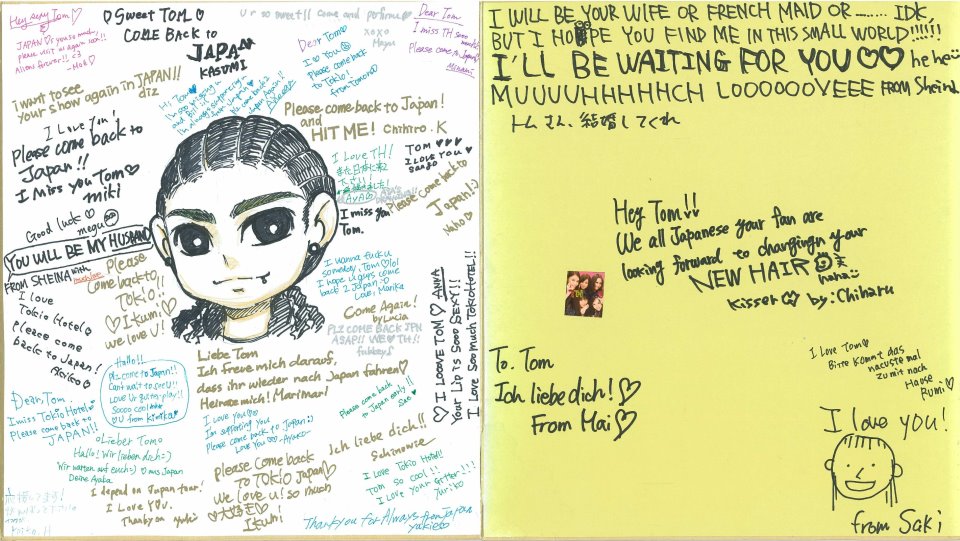 Hey sexy Tom♡
♡Sweet TOM♡
COME BACK to
JAPAN
KASUMI
Ur so sweet!! come and perfume♡
xoxo
Mayu
Dear Tom
I miss TH
Please come to Japan
Minami
Dear Tom
I ♡ you
Please come
back to
Tokio!
i want to see
your show again in JAPAN!!
diz
Please come back to Japan!
and
HIT ME! Chihiro.K
I Love You!
Please come back to
Japan!!
I Miss you Tom♡
miki
I Love TH!
TOM♥♥♥
I LOVE YOU♥
Please come back to
Japan!:)
Naho♡
I miss you
Tom.
Good luck♡
megu
YOU WILL BE MY HUSBAND
FROM SHEINA with
Please
Come back to
TOKIO!!
♡Ikumi♡
we love U!
I love
Tokio Hotel♡
Please come
back to Japan!
Akiko♡
I wanna fuck u
someday, Tom♡lol
I hope u guys come
back 2 Japan
Love, Marika
Come Again!
by Lucia
PLZ COME BACK JPN
ASAP!! WE♡TH!!
♡I LOOOVE TOM♡ ANNA
Your Lip is Sooo SEXY!!
I Love Soo much TOKIO HOTEL!!
Liebe Tom
Ich freue mich darauf,
dass ihr wieder nach Japan fahren♡
Heirate mich! Marimari
Hallo!!
Plz come to Japan!!
Can't wait to see U!!
LOVE Ur guitar play!!
Soooo cool
♡U from Kirika♡
Dear. Tom
I miss Tokio Hotel♡
Please come back to
JAPAN!!
I love you♡
I'm supporting you
Please come back to Japan:)
Love You♡♡ -Ayako-
Please come back
to Japan early!!
Sae♡
Ich liebe dich!!
♡Lieber Tom♡
Hallo! Wir lieben dich=)
Wir warten auf euch=) aus Japan
Deine Ayaka
please come Back
to TOKIO JAPAN♡
We love u! so much
♡大好き♡
Ikumi
I Love Tokio Hotel!!
Tom so cool!!
I Love your GITTER!!!
Yuriko
I depend on Japan tour!
I Love YOU.
Thank you yuki
Thank you for Always from Japan
yukiko
I WILL BE YOUR WIFE OR FRENCH MAID OR ........ IDK,
BUT I HOPE YOU FIND ME IN THIS SMALL WORLD!!!!!!
I'LL BE WAITING FOR YOU♡♡ he he
MUUUUHHHHHCH LOOOOOOVEEE FROM Sheina
トムさん、結婚してくれ
Hey Tom!!
We all Japanese your fan are
looking forward to chargingn your
NEW HAIR
haha
kisser by: Chiharu
To. Tom
Ich liebe dich!♡
From Mai♡
I love Tom♡
Bitte kommt das
nacuste mal
zu mit nach
Haose
Rumi♡
I love you!
from Saki